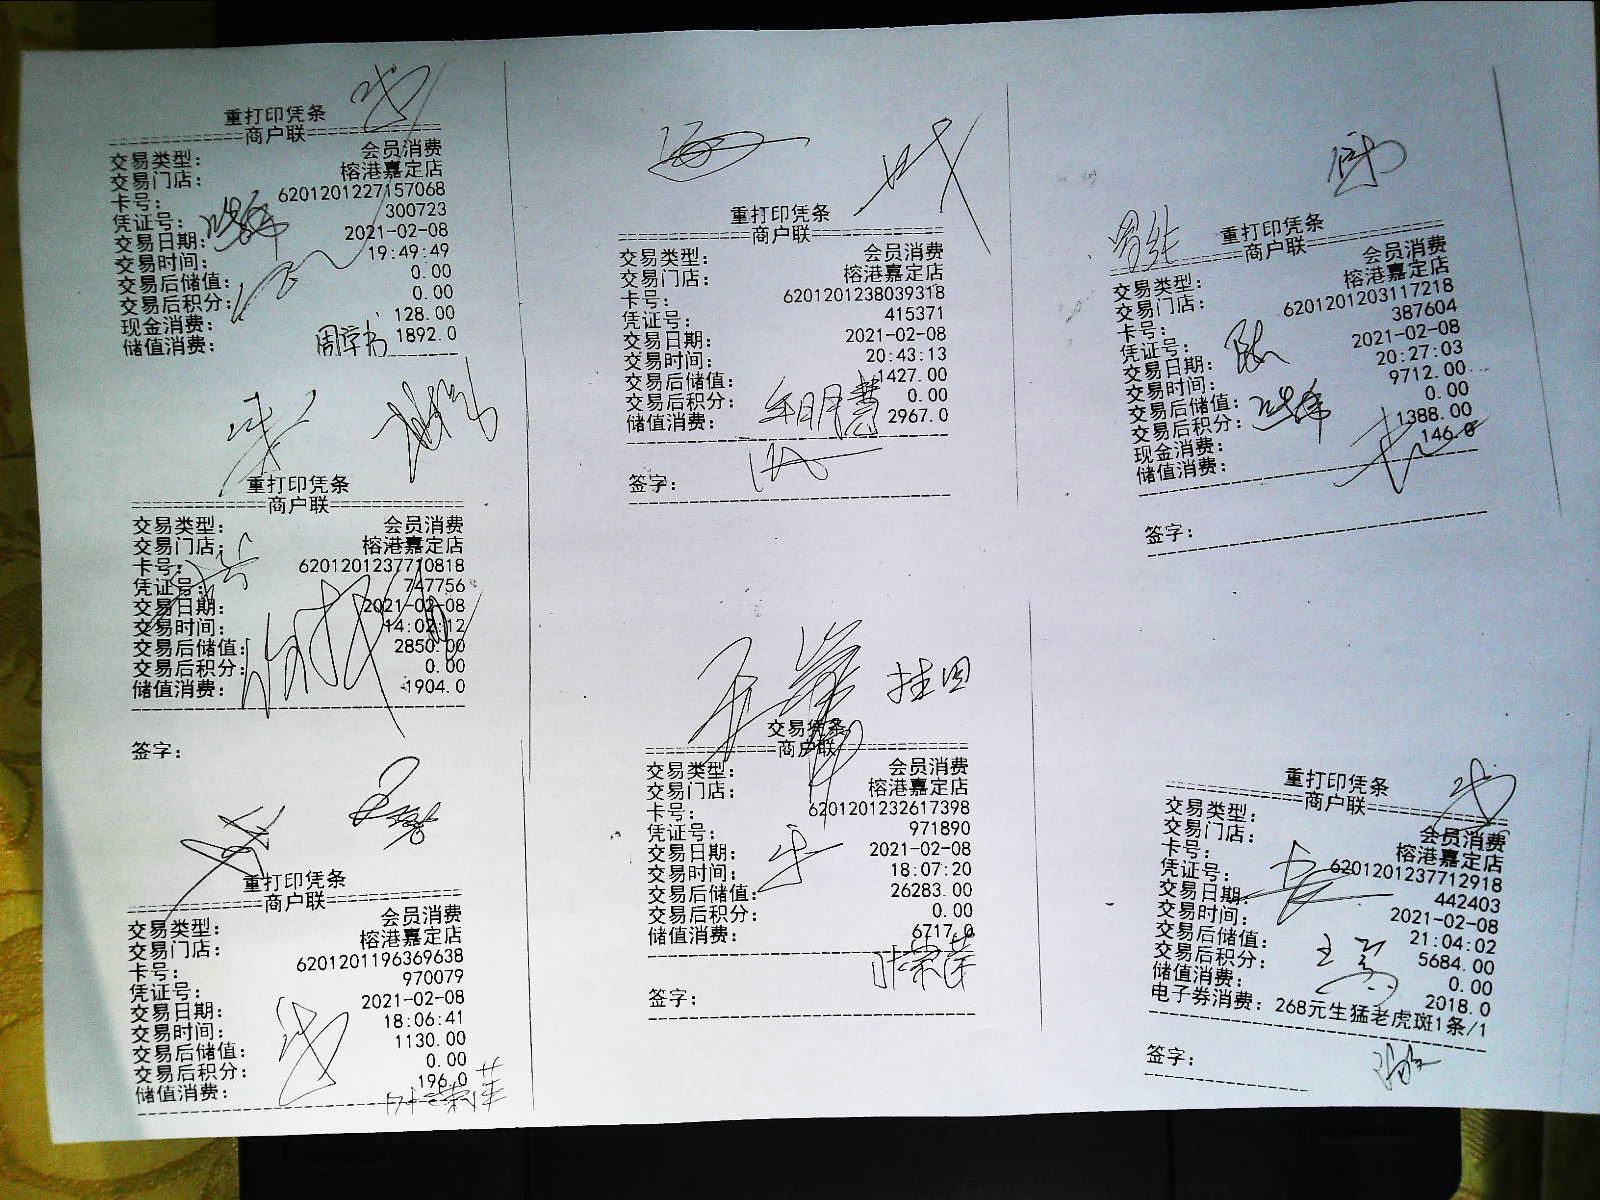 重打印凭条
==========商户联==========
交易类型: 会员消费
交易门店: 榕港嘉定店
卡号: 6201201227157068
凭证号: 300723
交易日期: 2021-02-08
交易时间: 19:49:49
交易后储值: 0.00
交易后积分: 0.00
现金消费: 128.00
储值消费: 1892.0
重打印凭条
==========商户联==========
交易类型: 会员消费
交易门店: 榕港嘉定店
卡号: 6201201237710818
凭证号: 747756
交易日期: 2021-02-08
交易时间: 14:02:12
交易后储值: 2850.00
交易后积分: 0.00
储值消费: 1904.0
签字:
重打印凭条
==========商户联==========
交易类型: 会员消费
交易门店: 榕港嘉定店
卡号: 6201201196369638
凭证号: 970079
交易日期: 2021-02-08
交易时间: 18:06:41
交易后储值: 1130.00
交易后积分: 0.00
储值消费: 196.0
重打印凭条
==========商户联==========
交易类型: 会员消费
交易门店: 榕港嘉定店
卡号: 6201201238039318
凭证号: 415371
交易日期: 2021-02-08
交易时间: 20:43:13
交易后储值: 1427.00
交易后积分: 0.00
储值消费: 2967.0
签字:
交易凭条
==========商户联==========
交易类型: 会员消费
交易门店: 榕港嘉定店
卡号: 6201201232617398
凭证号: 971890
交易日期: 2021-02-08
交易时间: 18:07:20
交易后储值: 26283.00
交易后积分: 0.00
储值消费: 6717.0
签字:
重打印凭条
==========商户联==========
交易类型: 会员消费
交易门店: 榕港嘉定店
卡号: 6201201203117218
凭证号: 387604
交易日期: 2021-02-08
交易时间: 20:27:03
交易后储值: 9712.00
交易后积分: 0.00
现金消费: 1388.00
储值消费: 146.0
签字:
重打印凭条
==========商户联==========
交易类型: 会员消费
交易门店: 榕港嘉定店
卡号: 6201201237712918
凭证号: 442403
交易日期: 2021-02-08
交易时间: 21:04:02
交易后储值: 5684.00
交易后积分: 0.00
储值消费: 2018.0
电子券消费: 268元生猛老虎斑1条/1
签字: